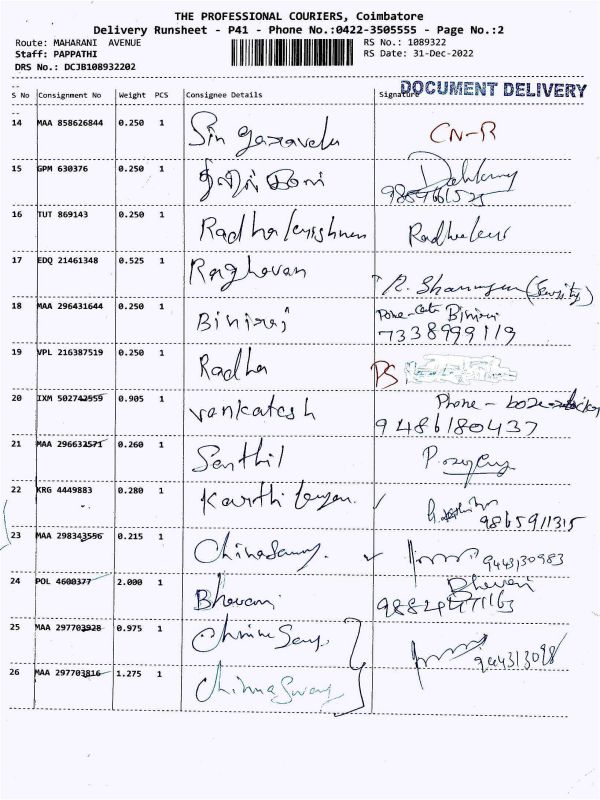 THE PROFESSIONAL COURIERS, Coimbatore
Delivery Runsheet - P41 - Phone No.:0422-3505555 - Page No.:2
Route: MAHARANI AVENUE RS No.: 1089322
Staff: PAPPATHI RS Date: 31-Dec-2022
DRS No.: DCJB108932202
DOCUMENT DELIVERY
S No Consignment No Weight PCS Consignee Details Signature
14 MAA 858626844 0.250 1 CN-R
15 GPM 630376 0.250 1
16 TUT 869143 0.250 1 Radhakrishnan
17 EDQ 21461348 0.525 1 Raghavan R. Shanmugam
18 MAA 296431644 0.250 1 Biniraj
7338999119
19 VPL 216387519 0.250 1 Radha PS
20 IXM 502742559 0.905 1 Venkatesh Phone -
9486180437
21 MAA 296632571 0.260 1 Senthil
22 KRG 4449883 0.280 1 Karthikeyan
9865911315
23 MAA 298343556 0.215 1 Chinnasamy 9443130983
24 POL 4600377 2.000 1 Bhavani
25 MAA 297703928 0.975 1
26 MAA 297703816 1.275 1 Chinnaswamy